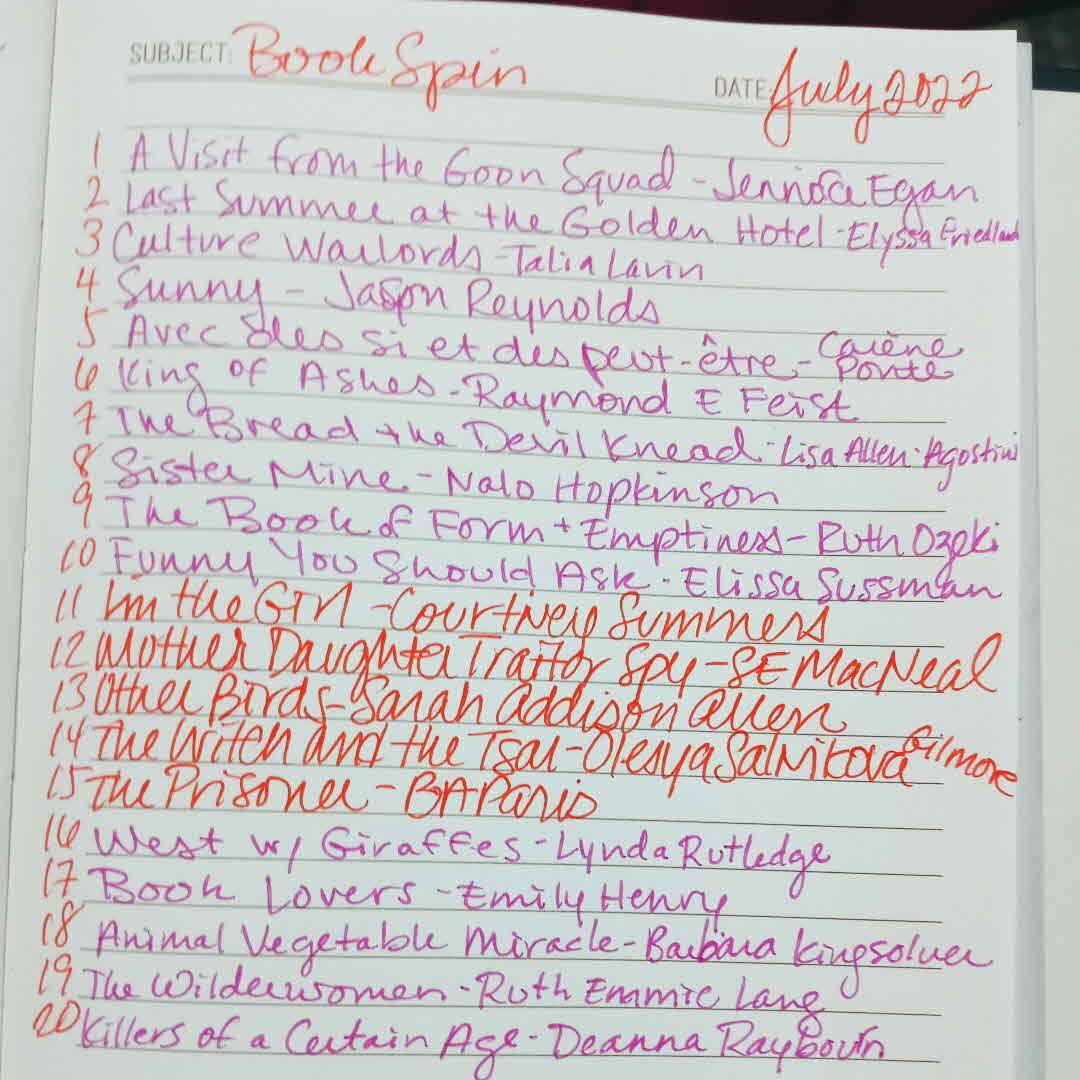 SUBJECT: Book Spin
DATE July 2022
1 A Visit from the Goon Squad - Jennifer Egan
2 Last Summer at the Golden Hotel - Elyssa Friedland
3 Culture Warlords - Talia Lavin
4 Sunny - Jason Reynolds
5 Avec des si et des peut-être - Carène Ponte
6 King of Ashes - Raymond E Feist
7 The Bread the Devil Knead - Lisa Allen-Agostini
8 Sister Mine - Nalo Hopkinson
9 The Book of Form + Emptiness - Ruth Ozeki
10 Funny You Should Ask - Elissa Sussman
11 Im the Girl - Courtney Summers
12 Mother Daughter Traitor Spy - SE MacNeal
13 Other Birds - Sarah Addison Allen
14 The Witch and the Tsar - Olesya Salnikova Gilmore
15 The Prisoner - BA Paris
16 West w/ Giraffes - Lynda Rutledge
17 Book Lovers - Emily Henry
18 Animal Vegetable Miracle - Barbara Kingsolver
19 The Wilderwomen - Ruth Emmie Lang
20 Killers of a Certain Age - Deanna Raybourn